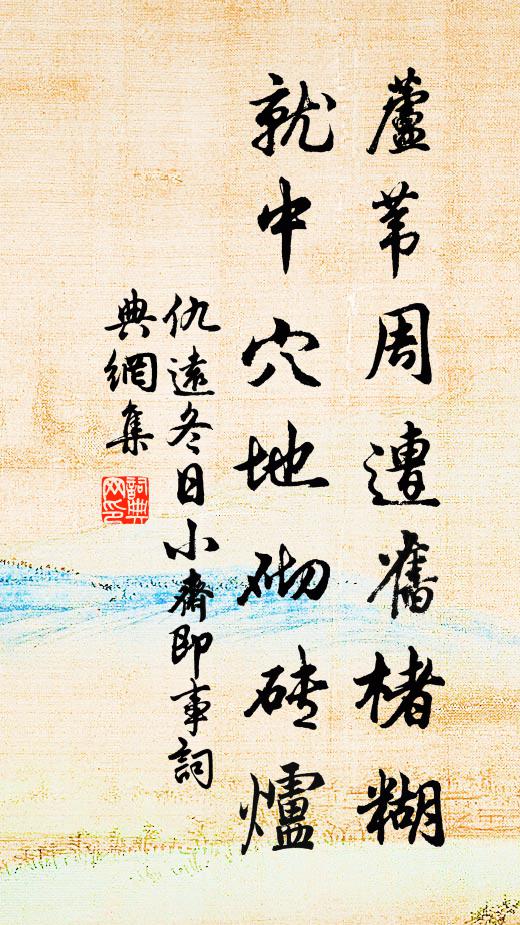 蘆葦周遭舊楮糊
就中穴地砌磚爐
仇遠冬日小齋即事詞
典網集
詞典
网印